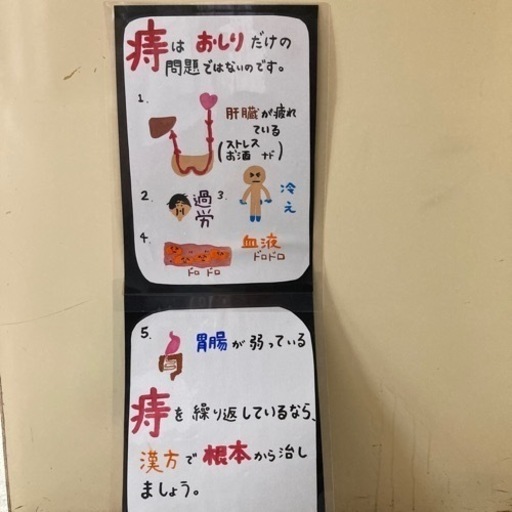 痔は おしりだけの
問題ではないのです。
1.
肝臓が疲れ
ている
(ストレス
お酒 など)
2.
過労
3.
冷え
4.
ドロドロ
血液
ドロドロ
5.
胃腸が弱っている
痔を繰り返しているなら、
漢方で根本から治し
ましょう。